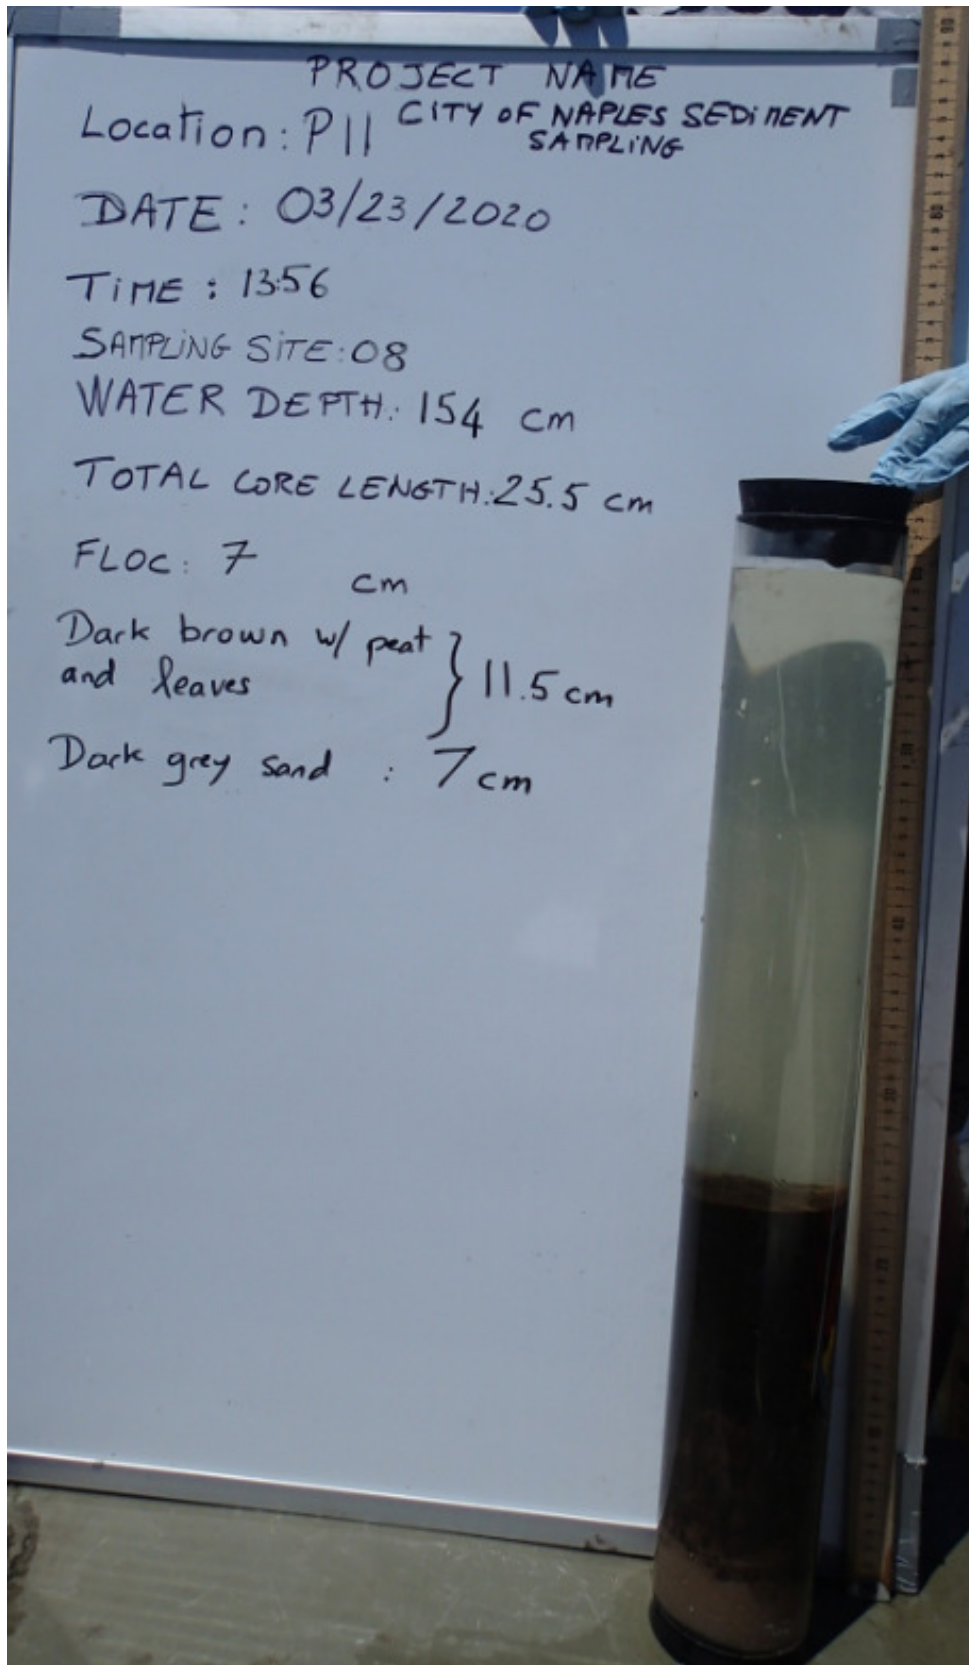 PROJECT NAME
CITY OF NAPLES SEDIMENT
SAMPLING
Location: P11
DATE: 03/23/2020
TIME: 13:56
SAMPLING SITE: 08
WATER DEPTH: 154 cm
TOTAL CORE LENGTH: 25.5 cm
FLOC: 7 cm
Dark brown w/ peat
and leaves } 11.5 cm
Dark grey sand : 7 cm